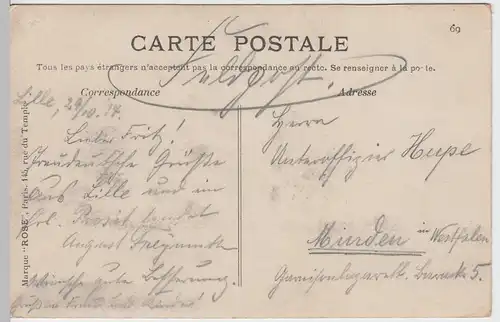 69
CARTE POSTALE
Tous les pays étrangers n'acceptent pas la correspondance au recto. Se renseigner à la poste.
Feldpost.
Correspondance
Adresse
Lille, 29/10. 14.
Lieber Fritz!
Treudeutsche Grüße
aus Lille und ein
Prosit sendet
August
Wünsche gute Besserung.
Herrn
Unteroffizier Hupe
Minden in Westfalen
Garnisonlazarett. Baracke 5.
Marque "ROSE", Paris-145, rue du Temple